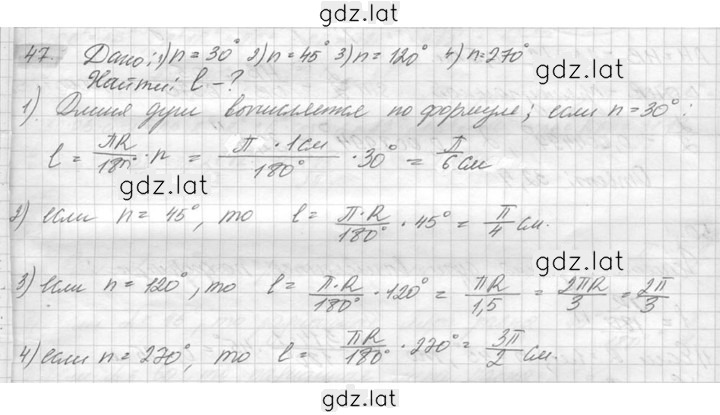 gdz.lat
47. Дано: 1) n = 30° 2) n = 45° 3) n = 120° 4) n = 270°
Найти: l - ?
1) Длина дуги вычисляется по формуле; если n = 30°:
l = πR/180° · n = π · 1см/180° · 30° = π/6 см
gdz.lat
2) если n = 45°, то l = π·R/180° · 45° = π/4 см.
gdz.lat
3) если n = 120°, то l = π·R/180° · 120° = πR/1,5 = 2πR/3 = 2π/3
4) если n = 270°, то l = πR/180° · 270° = 3π/2 см.
gdz.lat